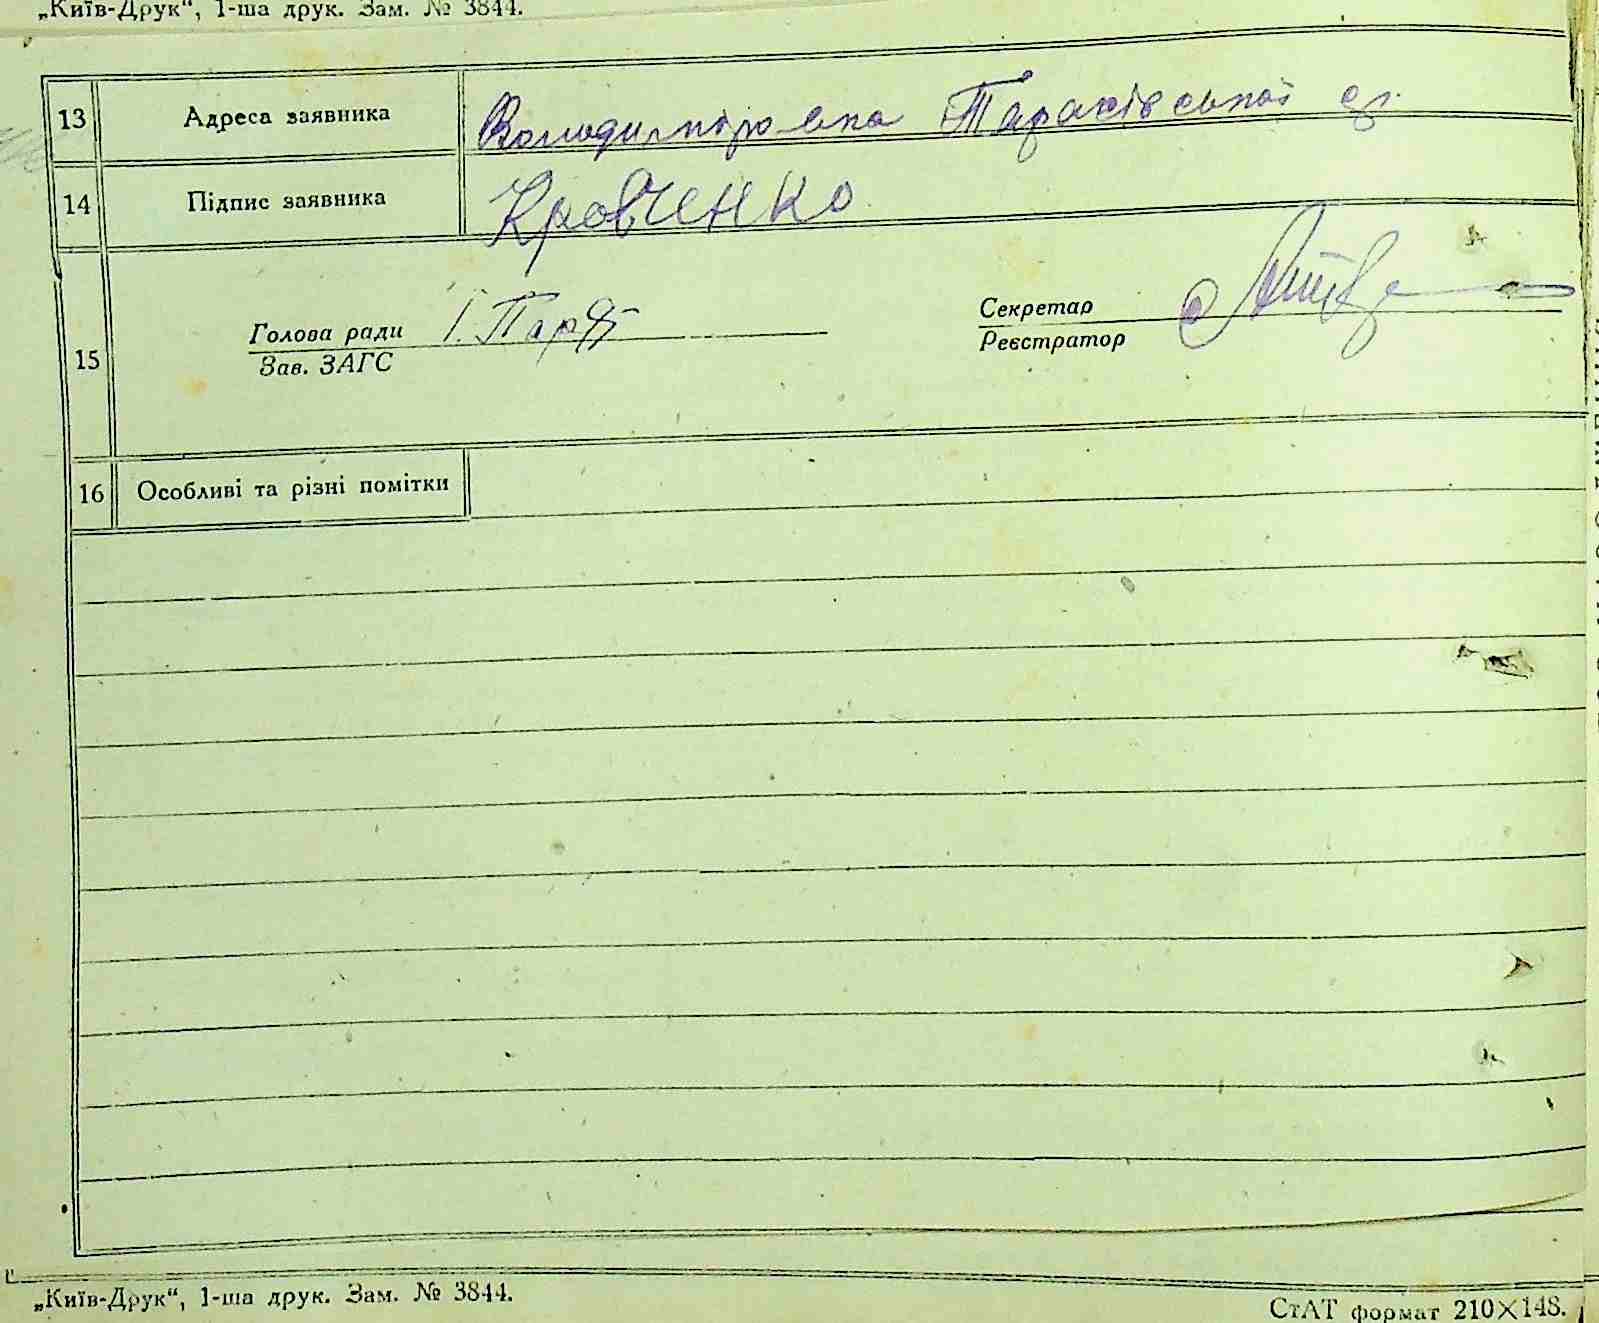 „Київ-Друк“, 1-ша друк. Зам. № 3844.
13 Адреса заявника Володимировка Тарасівської
14 Підпис заявника Кровченко
Голова ради Секретар
15 Зав. ЗАГС Реєстратор
16 Особливі та різні помітки
„Київ-Друк“, 1-ша друк. Зам. № 3844.
СтАТ формат 210×148.